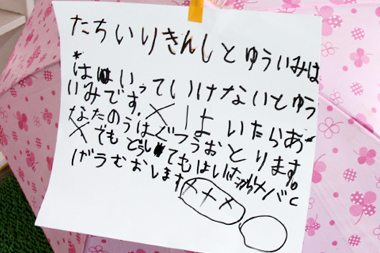 たちいりきんしとゆういみは
はいっていけないとゆう
いみです。×いたらあ
なたのうはぐつうおとります。
×でもどうしてもはい
ガラむおします